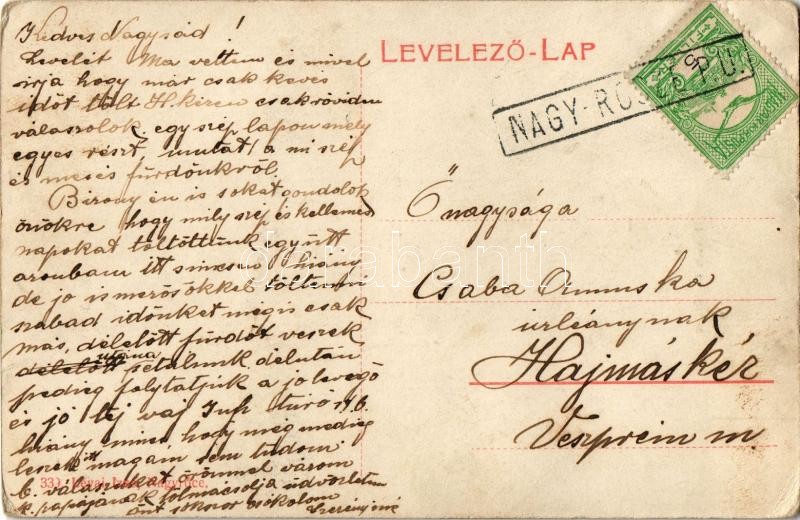 Kedves Nagysád!
Levelét Ma vettem és mivel
irja hogy már csak kevés
időt tölt H.kéren csak röviden
válaszolok egy szép lapon mely
egyes részt mutat a mi szép
és mesés fürdőnkről.
Bizony én is sokat gondolok
önökre hogy mily szép és kellemes
napokat töltöttünk együtt
azonban itt sincsen hiány
de jo ismerősökkel töltem
szabad időnket mégis csak
más, délelőtt fürdőt veszek
utána
délelőtt sétalunk délután
pedig folytatjuk a jo levegő
és jó tej vaj Juh turó
hiány nincs hogy még meddig
leszek itt magam sem tudom
b. válaszukat örömmel várom
k. papájának tolmácsolja üdvözletem
önt sokszor csókolom
LEVELEZŐ-LAP
NAGY-RŐCZE P.U.
Ő nagysága
Csaba
urleánynak
Hajmáskér
Veszprém m.
darabanth